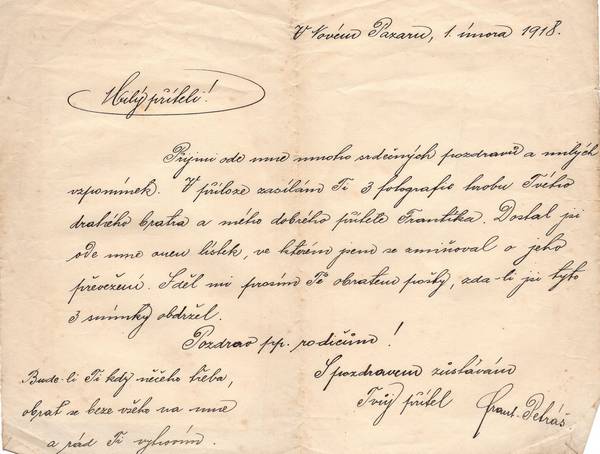 V Novém Pazaru, 1. února 1918.
Milý příteli!
Přijmi ode mne mnoho srdečných pozdravů a milých
vzpomínek. V příloze zasílám Ti 3 fotografie hrobu Tvého
drahého bratra a mého dobrého přítele Františka. Dostal jsi
ode mne onen lístek, ve kterém jsem se zmiňoval o jeho
převezení. Sděl mi prosím Tě obratem pošty, zda-li jsi tyto
3 snímky obdržel.
Pozdrav pp. rodičům!
S pozdravem zůstávám
Tvůj přítel Frant. Petráš.
Bude-li Ti kdy něčeho třeba,
obrať se beze všeho na mne
a rád Ti vyhovím.